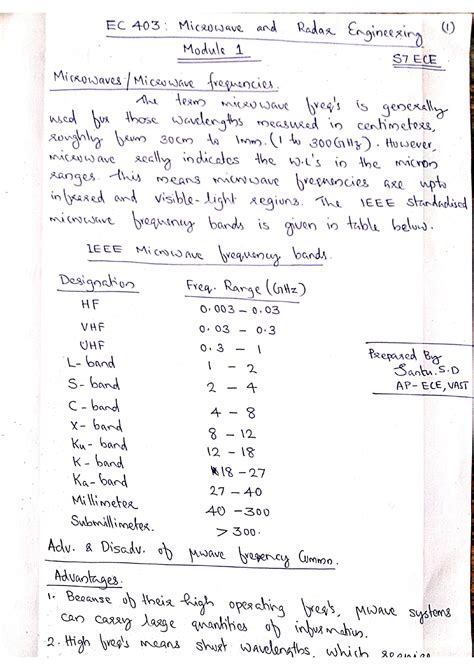 EC 403: Microwave and Radar Engineering (1)
Module 1
S7 ECE
Microwaves / Microwave frequencies.
The term microwave freq's is generally
used for those wavelengths measured in centimeters,
roughly from 30cm to 1mm. (1 to 300GHz). However,
microwave really indicates the W.L's in the micron
ranges. This means microwave frequencies are upto
infrared and visible-light regions. The IEEE standardised
microwave frequency bands is given in table below.
IEEE Microwave frequency bands.
Designation Freq. Range (GHz)
HF 0.003 - 0.03
VHF 0.03 - 0.3
UHF 0.3 - 1
L- band 1 - 2
S- band 2 - 4
C - band 4 - 8
X - band 8 - 12
Ku - band 12 - 18
K - band 18 - 27
Ka - band 27 - 40
Millimeter 40 - 300
Submillimeter. > 300.
Prepared By
S.D
AP- ECE, VAST
Adv. & Disadv. of μwave freqency Commn.
Advantages.
1. Because of their high operating freq's, μwave systems
can carry large quantities of information.
2. High freq's means short wavelengths, which require